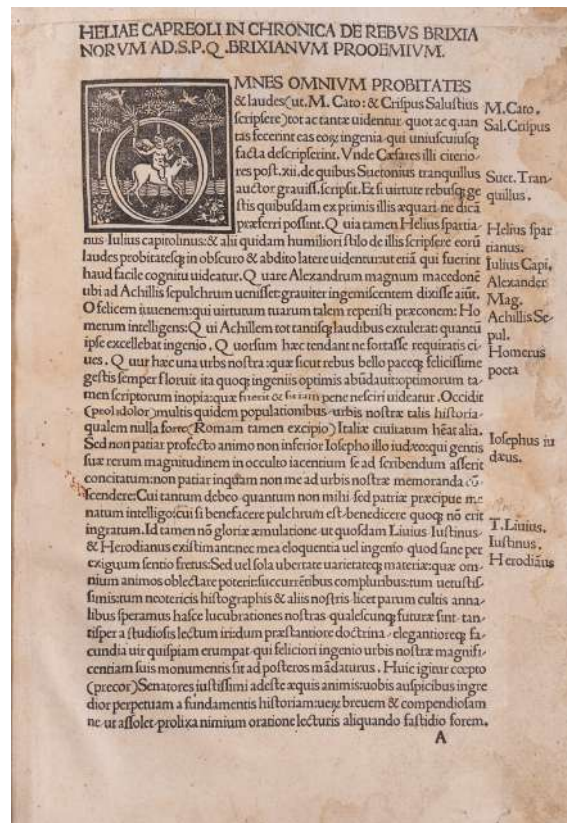 HELIAE CAPREOLI IN CHRONICA DE REBVS BRIXIA
NORVM AD.S.P.Q.BRIXIANVM PROOEMIVM.
O
MNES OMNIVM PROBITATES
& laudes(ut.M.Cato:& Crispus Salustius
scripsere)tot ac tantæ uidentur quot ac q̃uan
tas fecerint eas eoꝝ ingenia qui uniuscuiusqꝫ
facta descripserint.Vnde Cæsares illi citerio-
res post.xii.de quibus Suetonius tranquillus
auctor grauiss.scripsit.Et si uirtute rebusqꝫ ge
stis quibusdam ex primis illis æquari ne dicā
præferri possint.Quia tamen Helius spartia-
nus Iulius capitolinus:& alii quidam humiliori stilo de illis scripsere eorū
laudes probitatesqꝫ in obscuro & abdito latere uidentur:ut etiā qui fuerint
haud facile cognitu uideatur.Quare Alexandrum magnum macedonē
ubi ad Achillis sepulchrum uenisset:grauiter ingemiscentem dixisse aiūt.
O felicem iuuenem:qui uirtutum tuarum talem reperisti præconem:Ho
merum intelligens:Qui Achillem tot tantisqꝫ laudibus extulerat quantū
ipse excellebat ingenio.Quorsum hæc tendant ne fortasse requiratis ci-
ues.Quur hæc una urbs nostra:quæ sicut rebus bello paceqꝫ felicissime
gestis semper floruit ita quoqꝫ ingeniis optimis abūdauit:optimorum ta-
men scriptorum inopia:quæ fuerit & pene nesciri uideatur.Occidit
(proh dolor)multis quidem populationibus urbis nostræ talis historia-
qualem nulla forte(Romam tamen excipio)Italiæ ciuitatum hēat alia.
Sed non patiar profecto animo non inferior Iosepho illo iudæo:qui gentis
suæ rerum magnitudinem in occulto iacentium se ad scribendum asserit
concitatum:non patiar inquam non me ad urbis nostræ memoranda cō-
scendere:Cui tantum debeo quantum non mihi sed patriæ præcipue me
natum intelligo:cui si benefacere pulchrum est-benedicere quoqꝫ nō erit
ingratum.Id tamen nō gloriæ æmulatione ut quosdam Liuius Iustinus-
& Herodianus existimant:nec mea eloquentia uel ingenio quod sane per
exiguum sentio fretus:Sed uel sola ubertate uarietateqꝫ materiæ:quæ om-
nium animos oblectare poterit:succurrētibus compluribus:tum uetustis-
simis:tum neotericis histographis & aliis nostris licet parum cultis anna-
libus speramus hasce lucubrationes nostras qualescunqꝫ futuræ sint tan-
tisper a studiosis lectum iri:dum præstantiore doctrina-elegantioreqꝫ fa-
cundia uir quispiam erumpat qui feliciori ingenio urbis nostræ magnifi-
centiam suis monumentis sit ad posteros mādaturus.Huic igitur cœpto
(precor)Senatores iustissimi adeste æquis animis:uobis auspicibus ingre
dior perpetuam a fundamentis historiam:ueꝝ breuem & compendiosam
ne ut assolet prolixa nimium oratione lecturis aliquando fastidio forem.
A
M.Cato.
Sal.Crispus
Suet.Tran-
quillus.
Helius spar
tianus.
Iulius Capi.
Alexander
Mag.
Achillis Se-
pul.
Homerus
poeta
Iosephus iu
dæus.
T.Liuius.
Iustinus.
Herodiāus